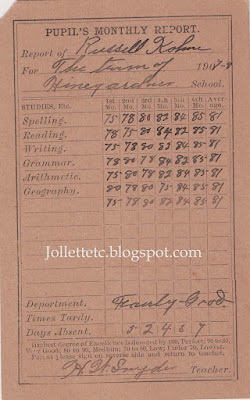 PUPIL'S MONTHLY REPORT.
Report of Russell Kohne
For The term of 1907-8
School.
STUDIES, Etc. 1st Mo. 2nd Mo. 3rd Mo. 4th Mo. 5th Mo. 6th Mo. Aver age.
Spelling. 75 78 80 82 84 85 81
Reading. 78 75 80 84 82 85 81
Writing. 75 78 80 82 84 85 81
Grammar. 78 80 78 84 82 85 81
Arithmetic. 75 78 80 82 84 85 81
Geography. 80 78 80 75 84 85 81
75 78 80 82 84 85 81
Jollettetc.blogspot.com
Department. Fairly Good
Times Tardy.
Days Absent. 5 2 4 6 7
Highest degree of Excellence is denoted by 100, Perfect; 90 to 99,
Very Good; 80 to 90, Medium; 70 to 80, Low; Under 70, Lowest.
Parent please sign on reverse side and return to teacher.
H. W. Snyder Teacher.